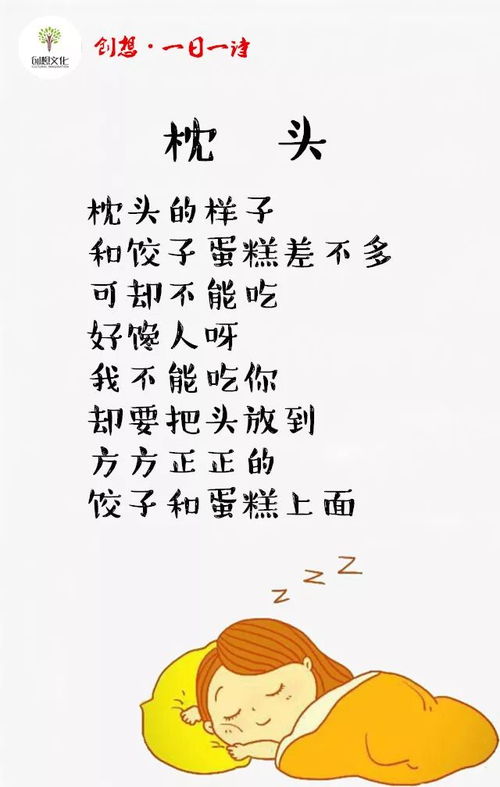 创想文化
创想·一日一诗
枕 头
枕头的样子
和饺子蛋糕差不多
可却不能吃
好馋人呀
我不能吃你
却要把头放到
方方正正的
饺子和蛋糕上面
z z z